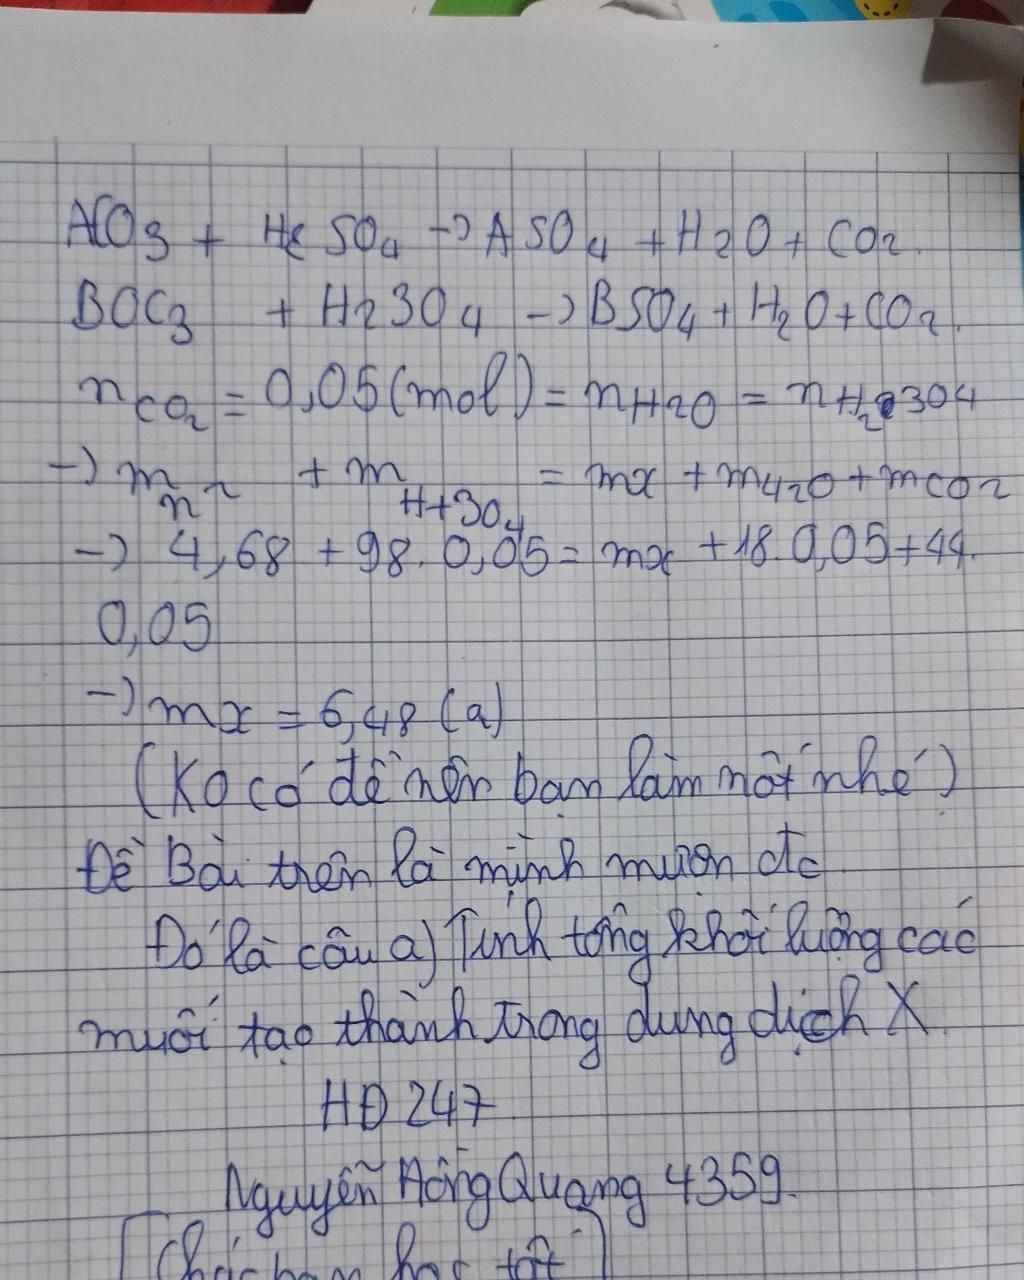 ACO3 + H2SO4 -> ASO4 + H2O + CO2.
BOC3 + H23O4 -> BSO4 + H2O + CO2.
nCO2 = 0,05 (mol) = nH2O = nH23O4
-> m n2 + m H+3O4 = mx + m42O + mCO2
-> 4,68 + 98. 0,05 = mx + 18. 0,05 + 44.
0,05
-> mx = 6,48 (a)
(Ko có đề nên bạn làm nốt nhé)
Đề Bài trên là mình mượn đc
Đó là câu a) Tính tổng khối lượng các
muối tạo thành trong dung dịch X.
HĐ 247
Nguyễn Hồng Quang 4359.
[Chúc bạn học tốt]